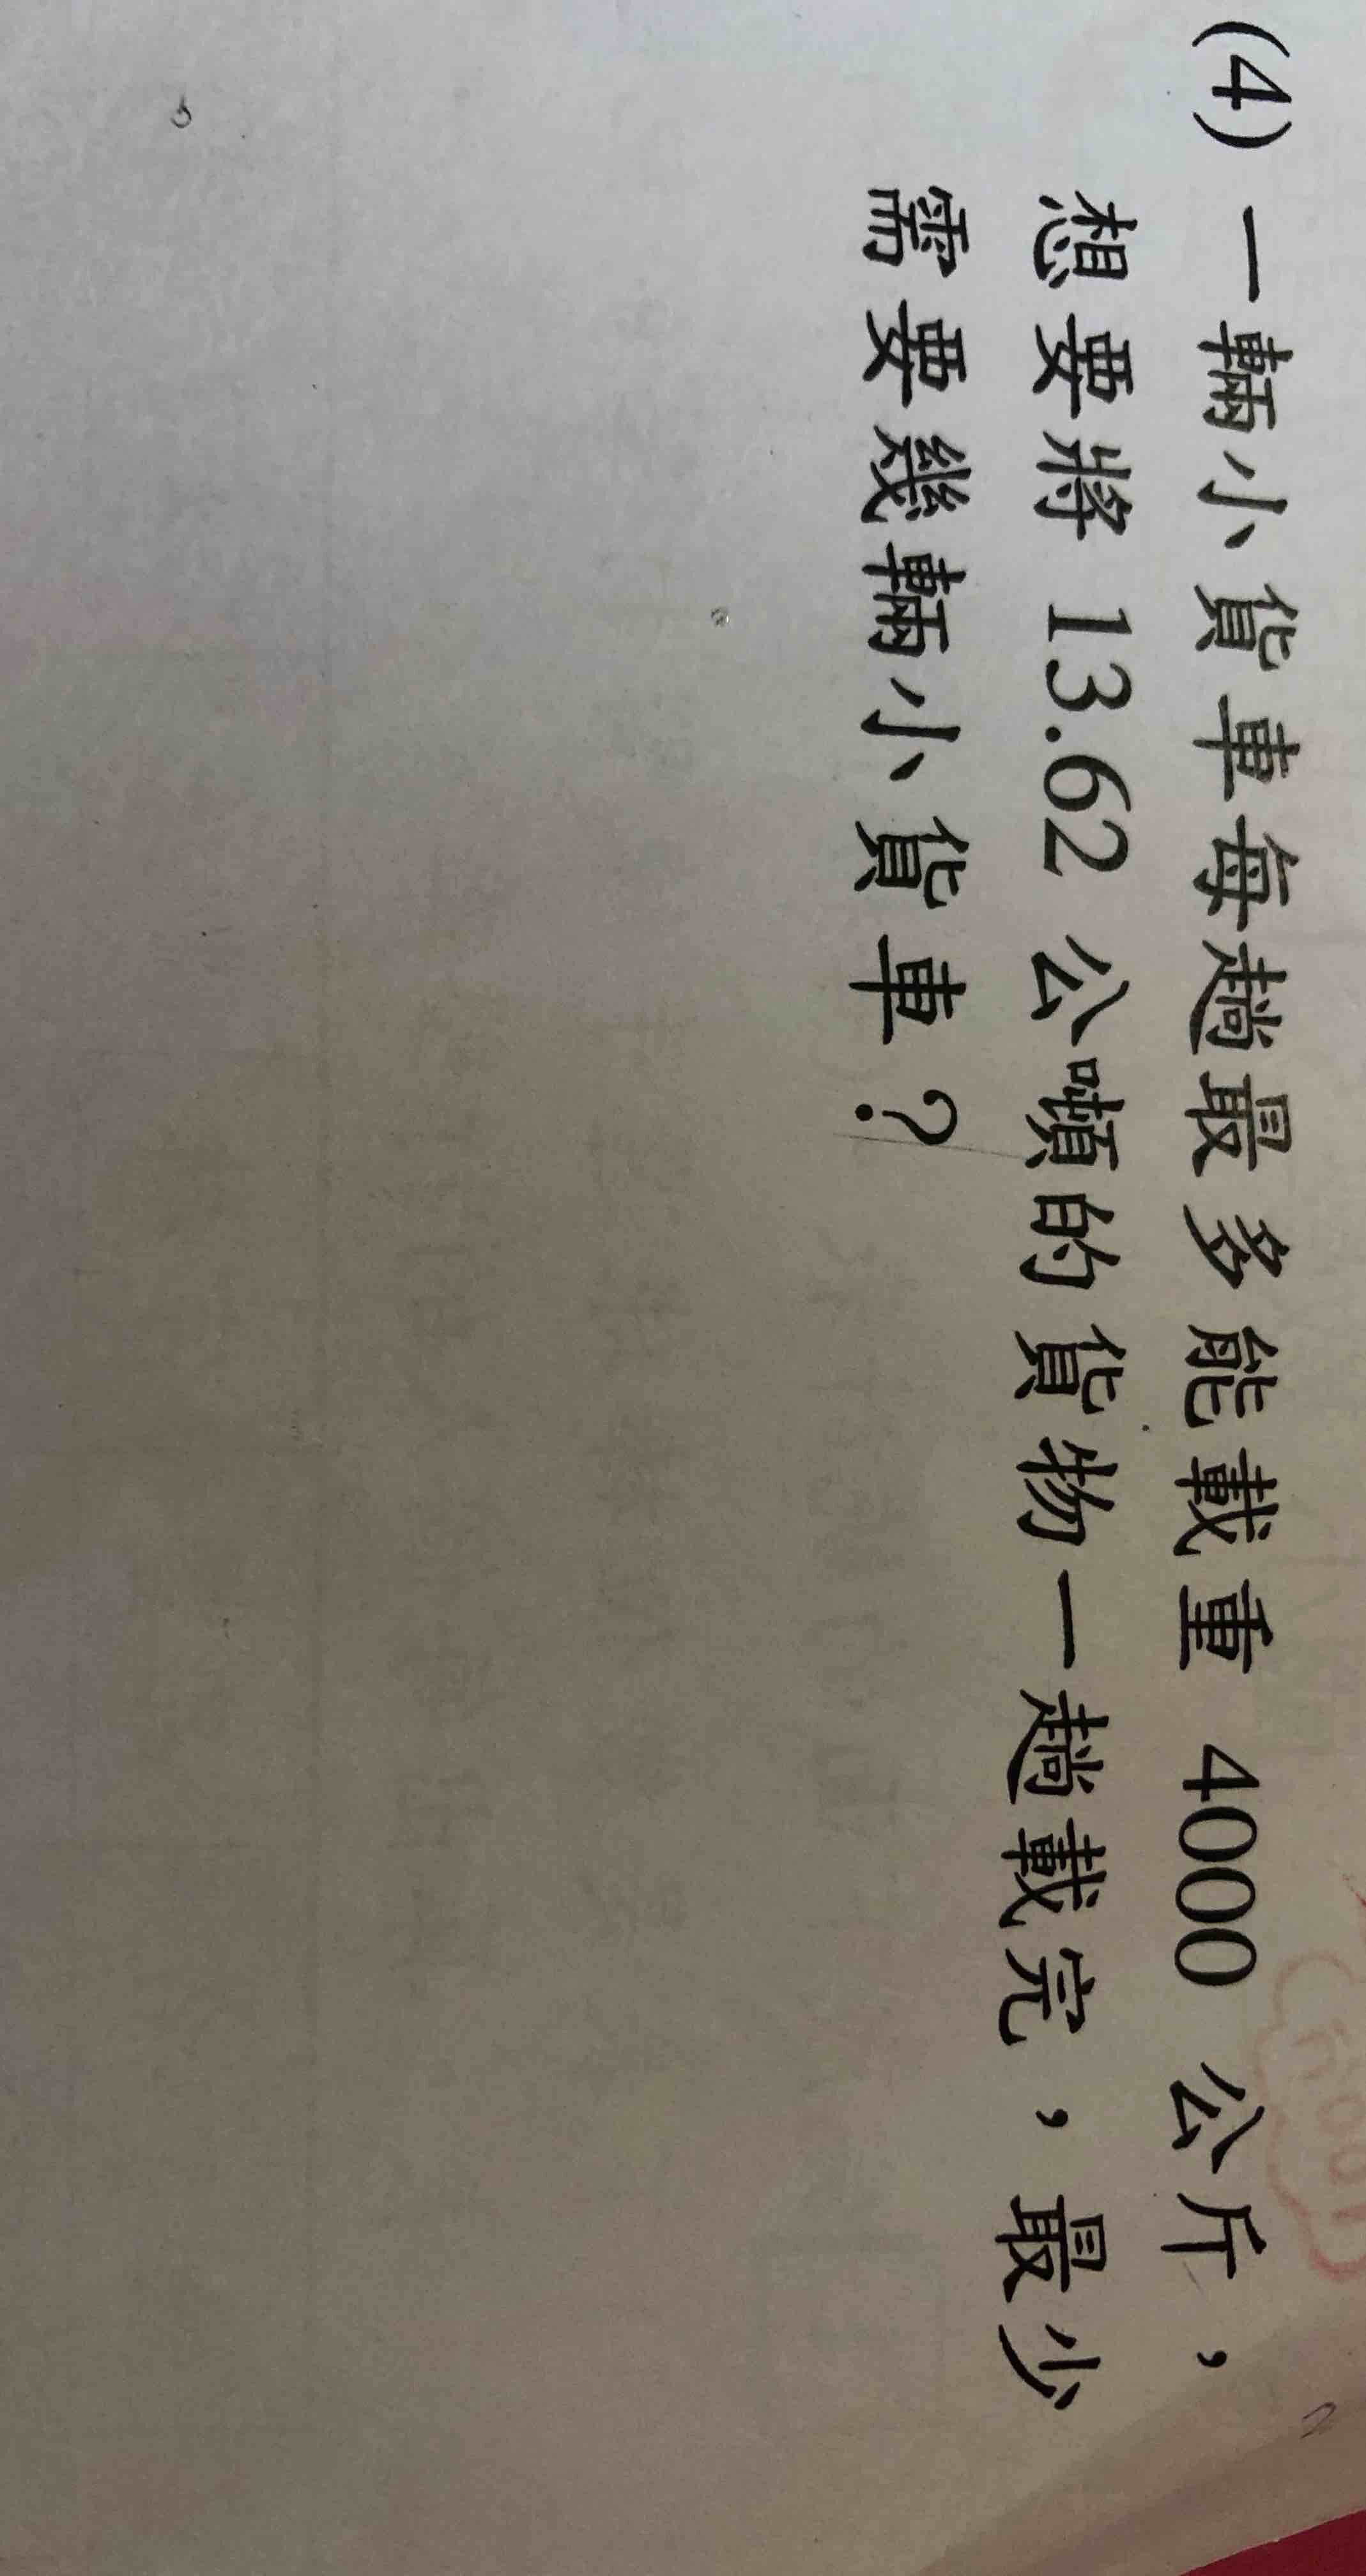 (4) 一輛小貨車每趟最多能載重 4000 公斤，
想要將 13.62 公噸的貨物一趟載完，最少
需要幾輛小貨車？